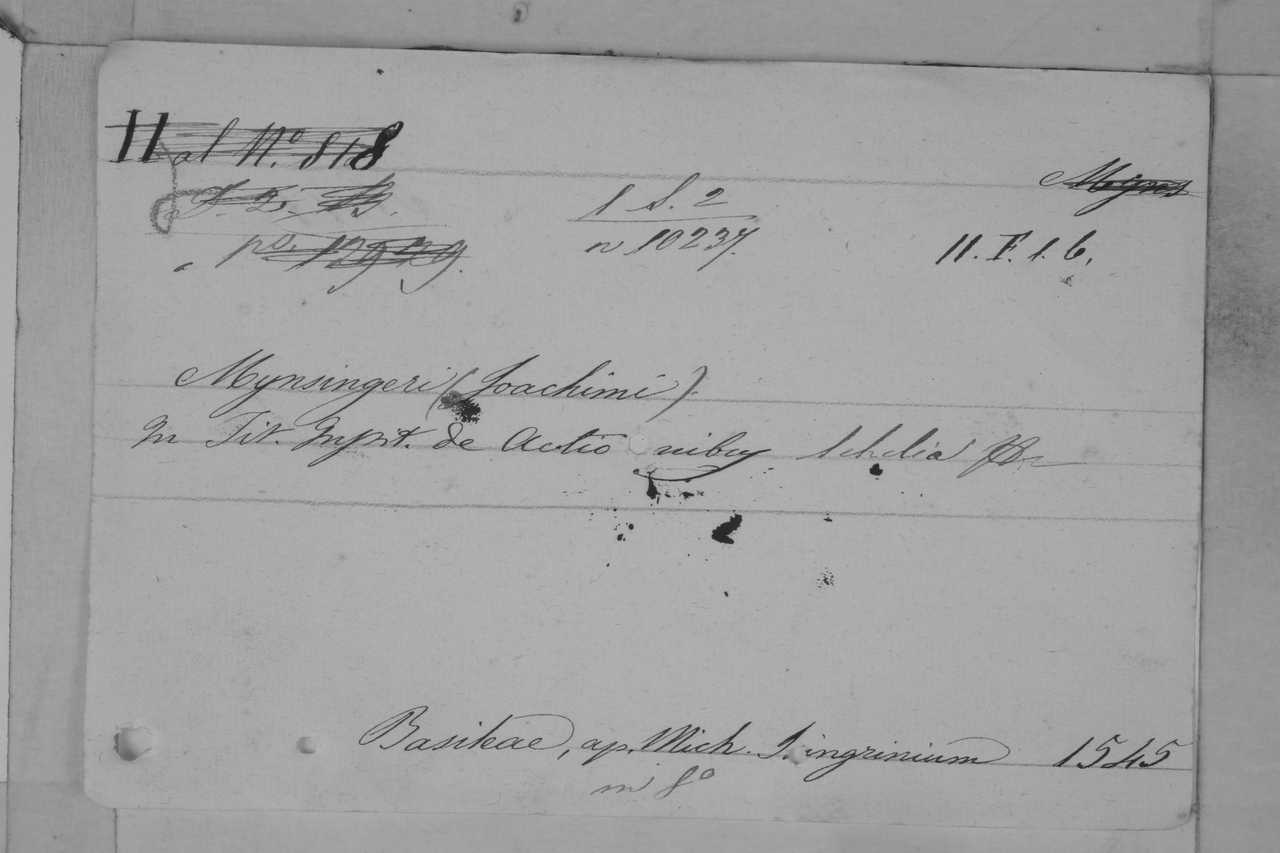 Hal N.º 818
Myns
1 S. 2
n 10237.
II. F. 1. 6.
nº 12929.
Mynsingeri (Joachimi).
In Tit. Inst. de Actio nibus Scholia
Basileae, ap. Mich. Isingrinium 1545
in 8º